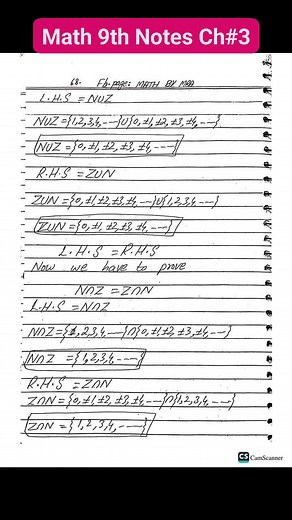 Math 9th Notes Ch#3
68. Fb.page: MATH BY MAA
L.H.S = N∪Z
N∪Z = {1,2,3,4,---}∪{0,±1,±2,±3,±4,---}
N∪Z = {0,±1,±2,±3,±4,---}
R.H.S = Z∪N
Z∪N = {0,±1,±2,±3,±4,---}∪{1,2,3,4---}
Z∪N = {0,±1,±2,±3,±4,---}
L.H.S = R.H.S
Now we have to prove
N∩Z = Z∩N
L.H.S = N∩Z
N∩Z = {1,2,3,4,---}∩{0,±1,±2,±3,±4,---}
N∩Z = {1,2,3,4,---}
R.H.S = Z∩N
Z∩N = {0,±1,±2,±3,±4,---}∩{1,2,3,4,---}
Z∩N = {1,2,3,4,---}
CS CamScanner